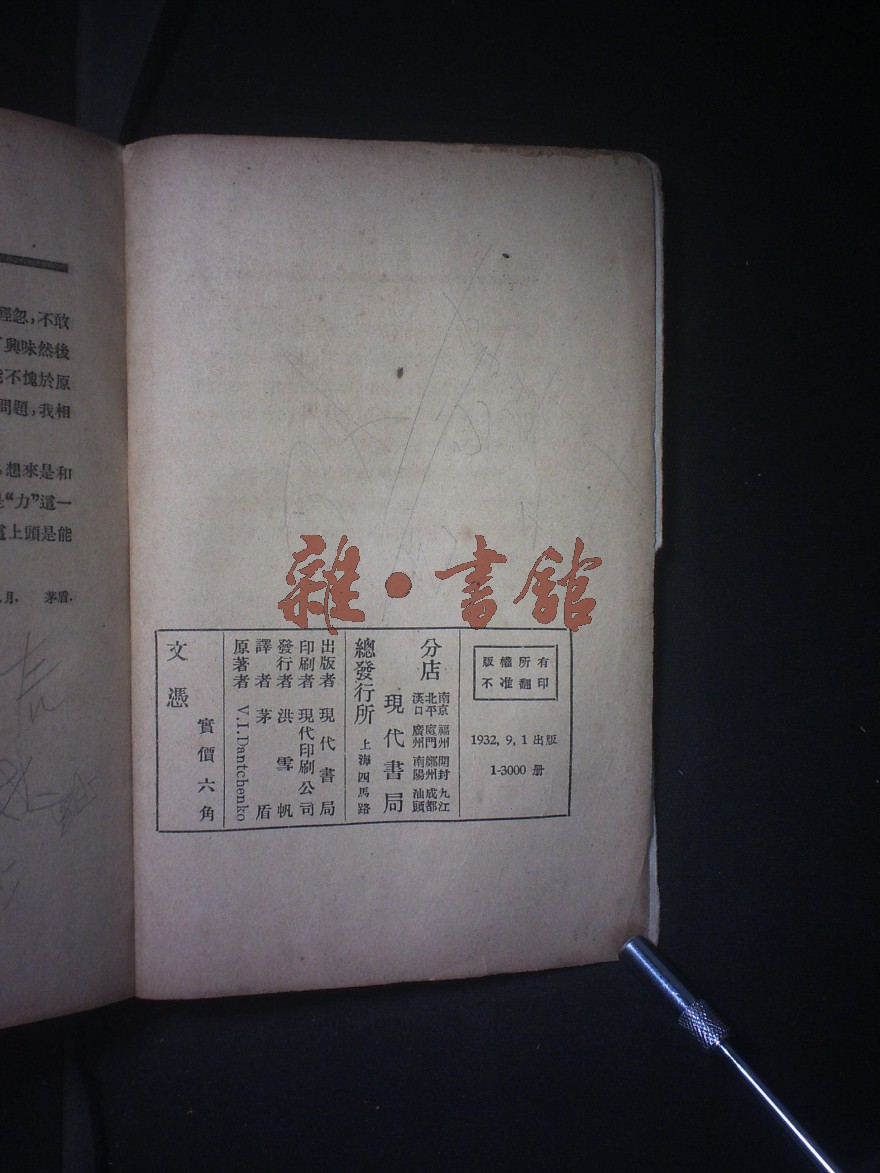 輕忽，不敢
興味然後
不愧於原
問題，我相
想來是和
“力”這一
上頭是能
月． 茅盾．
雜·書館
版權所有
不准翻印
1932, 9, 1 出版
1-3000 册
分店
南京 福州 開封 九江
北平 廈門 鄭州 成都
漢口 廣州 南陽 汕頭
現代書局
總發行所 上海四馬路
出版者 現代書局
印刷者 現代印刷公司
發行者 洪雪帆
譯者 茅盾
原著者 V.I.Dantchenko
文憑
實價六角